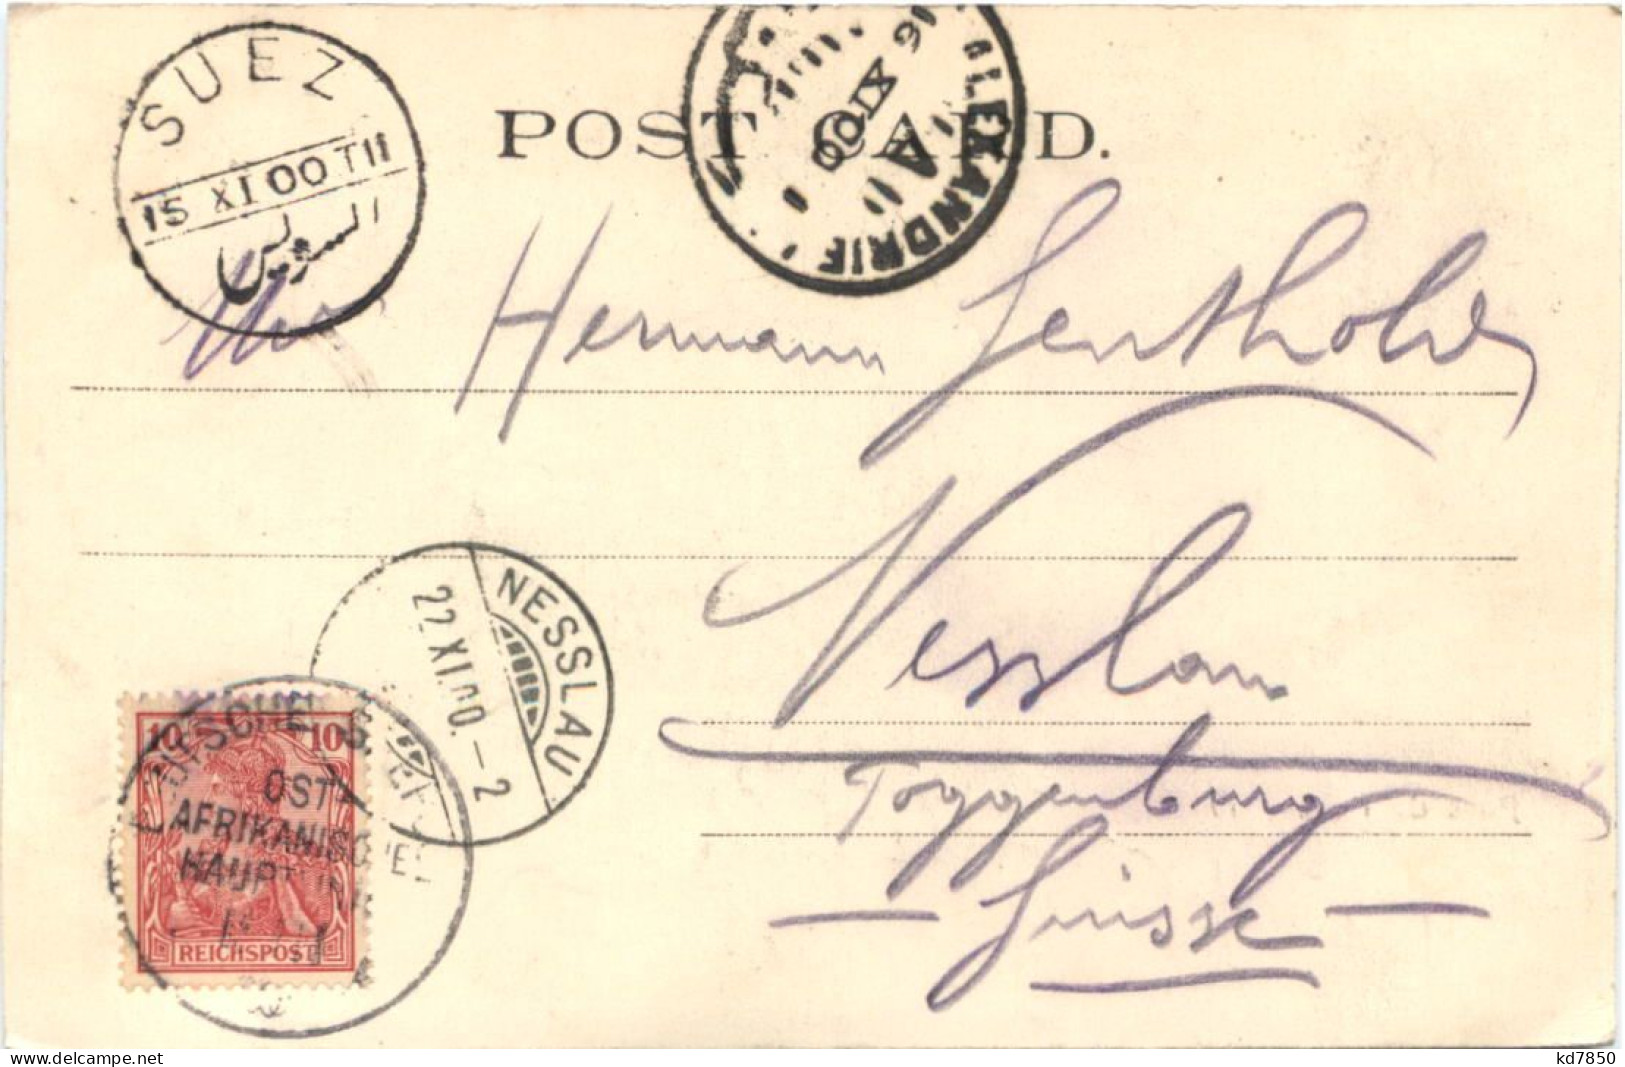 SUEZ
15 XI 00 T 11
السويس
ALEXANDRIE
A
16 XI 00
POST CARD.
Hermann
Nesslau
Toggenburg
— Suisse —
NESSLAU
22 XI.00.–2
10 10
REICHSPOST
DEUTSCHE SEEPOST
OST
AFRIKANISCHE
HAUPTLINIE
www.delcampe.net
kd7850